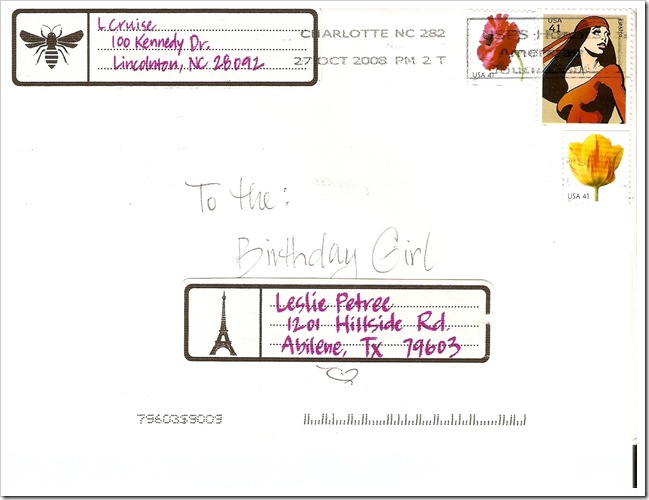 L Cruise
100 Kennedy Dr.
Lincolnton, NC 28092
CHARLOTTE NC 282
27 OCT 2008 PM 2 T
USA 41
USA
41
USA 41
To the:
Birthday Girl
Leslie Petree
1201 Hillside Rd.
Abilene, Tx 79603
79603$9009